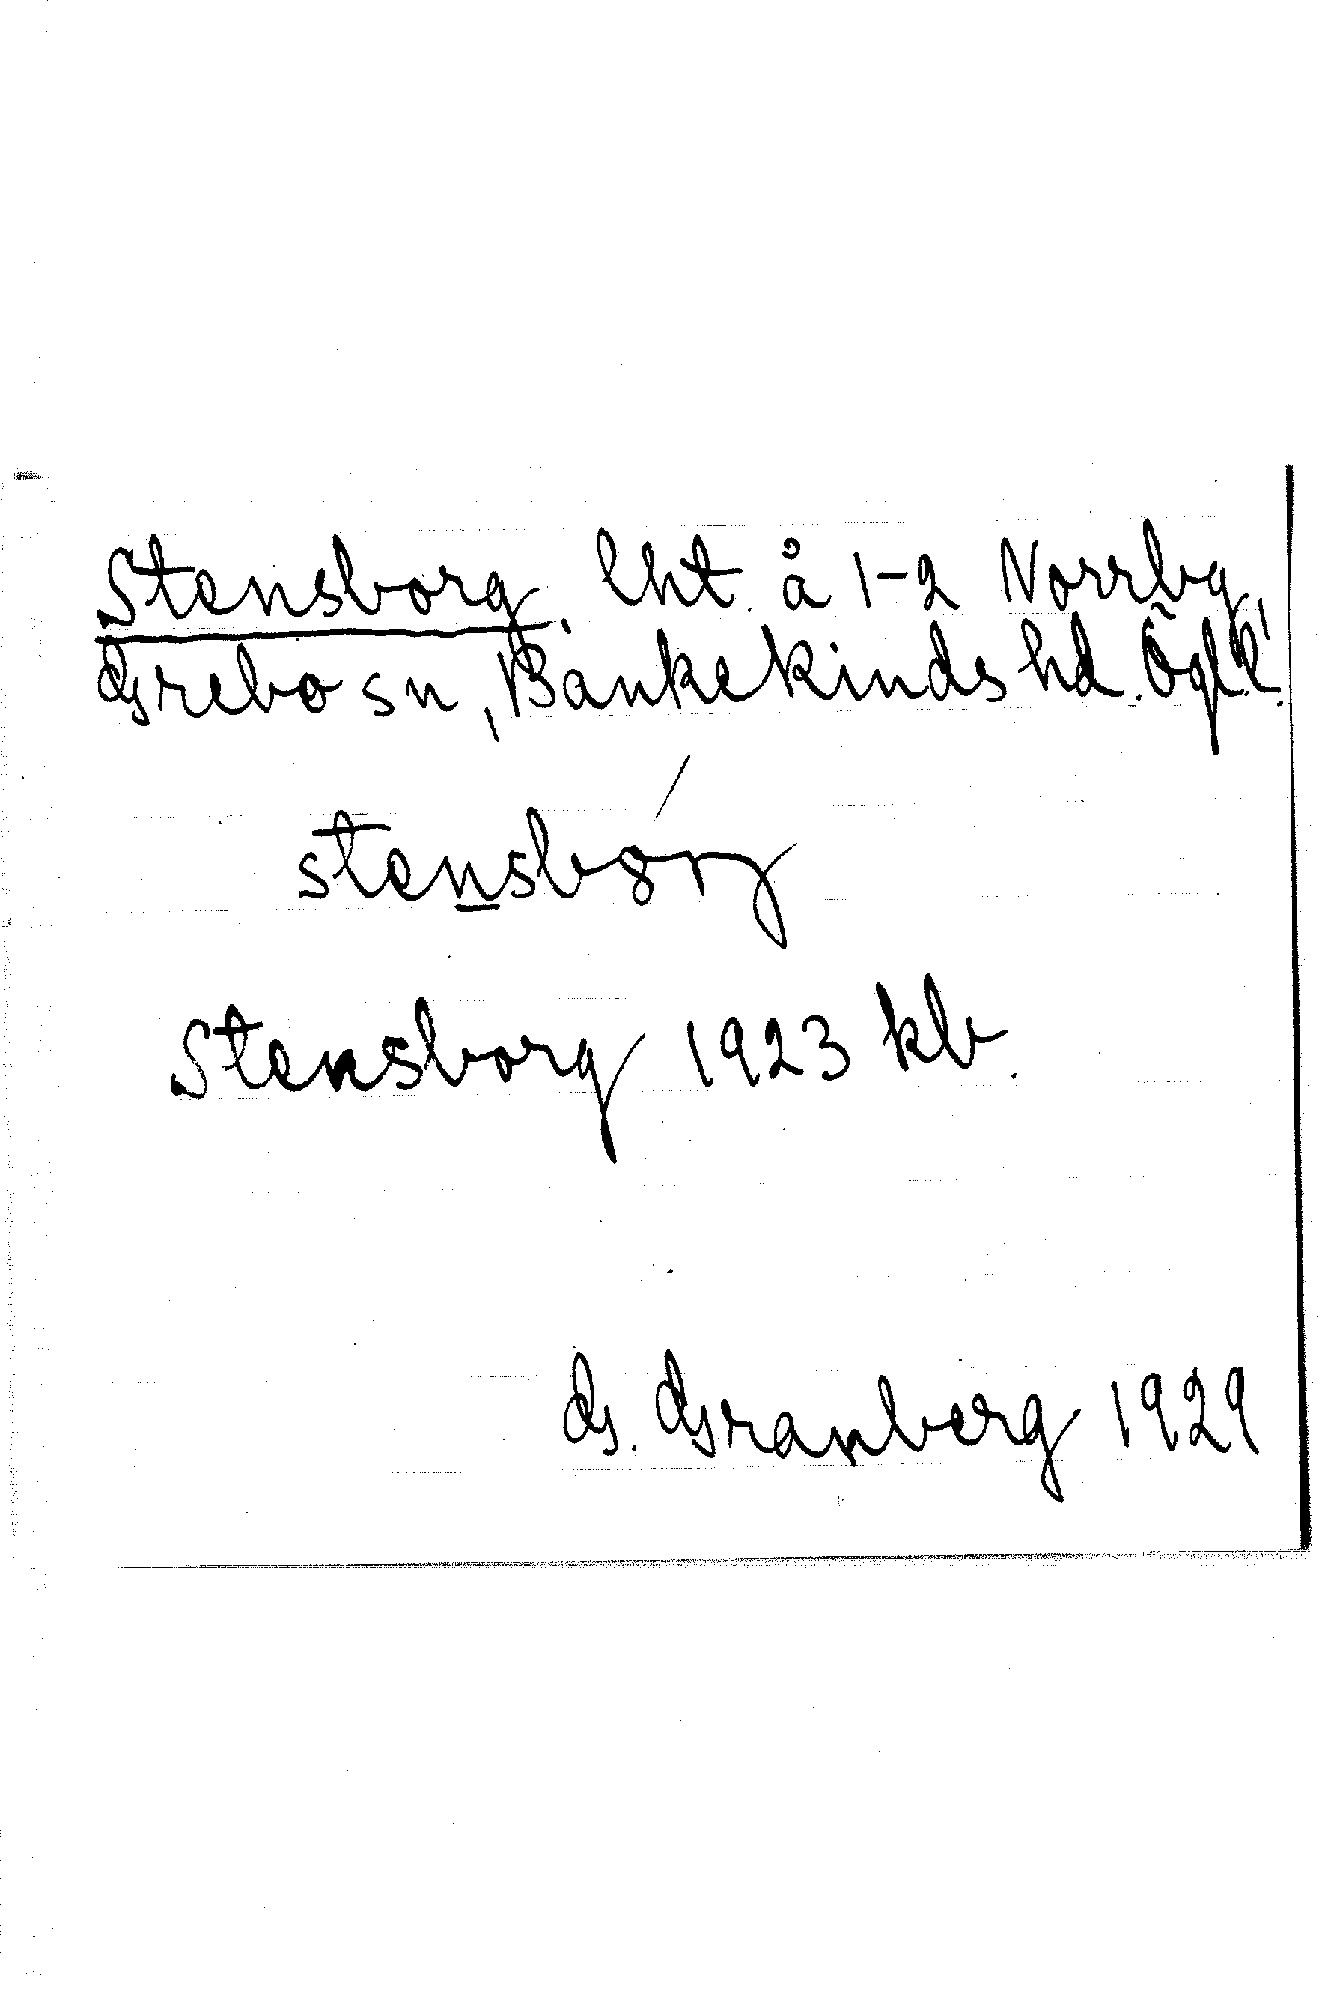 Stensborg, lht. å 1-2 Norrby,
Grebo sn, Bankekinds hd. Ögl.
stensborg
Stensborg 1923 kb.
G. Granberg 1929